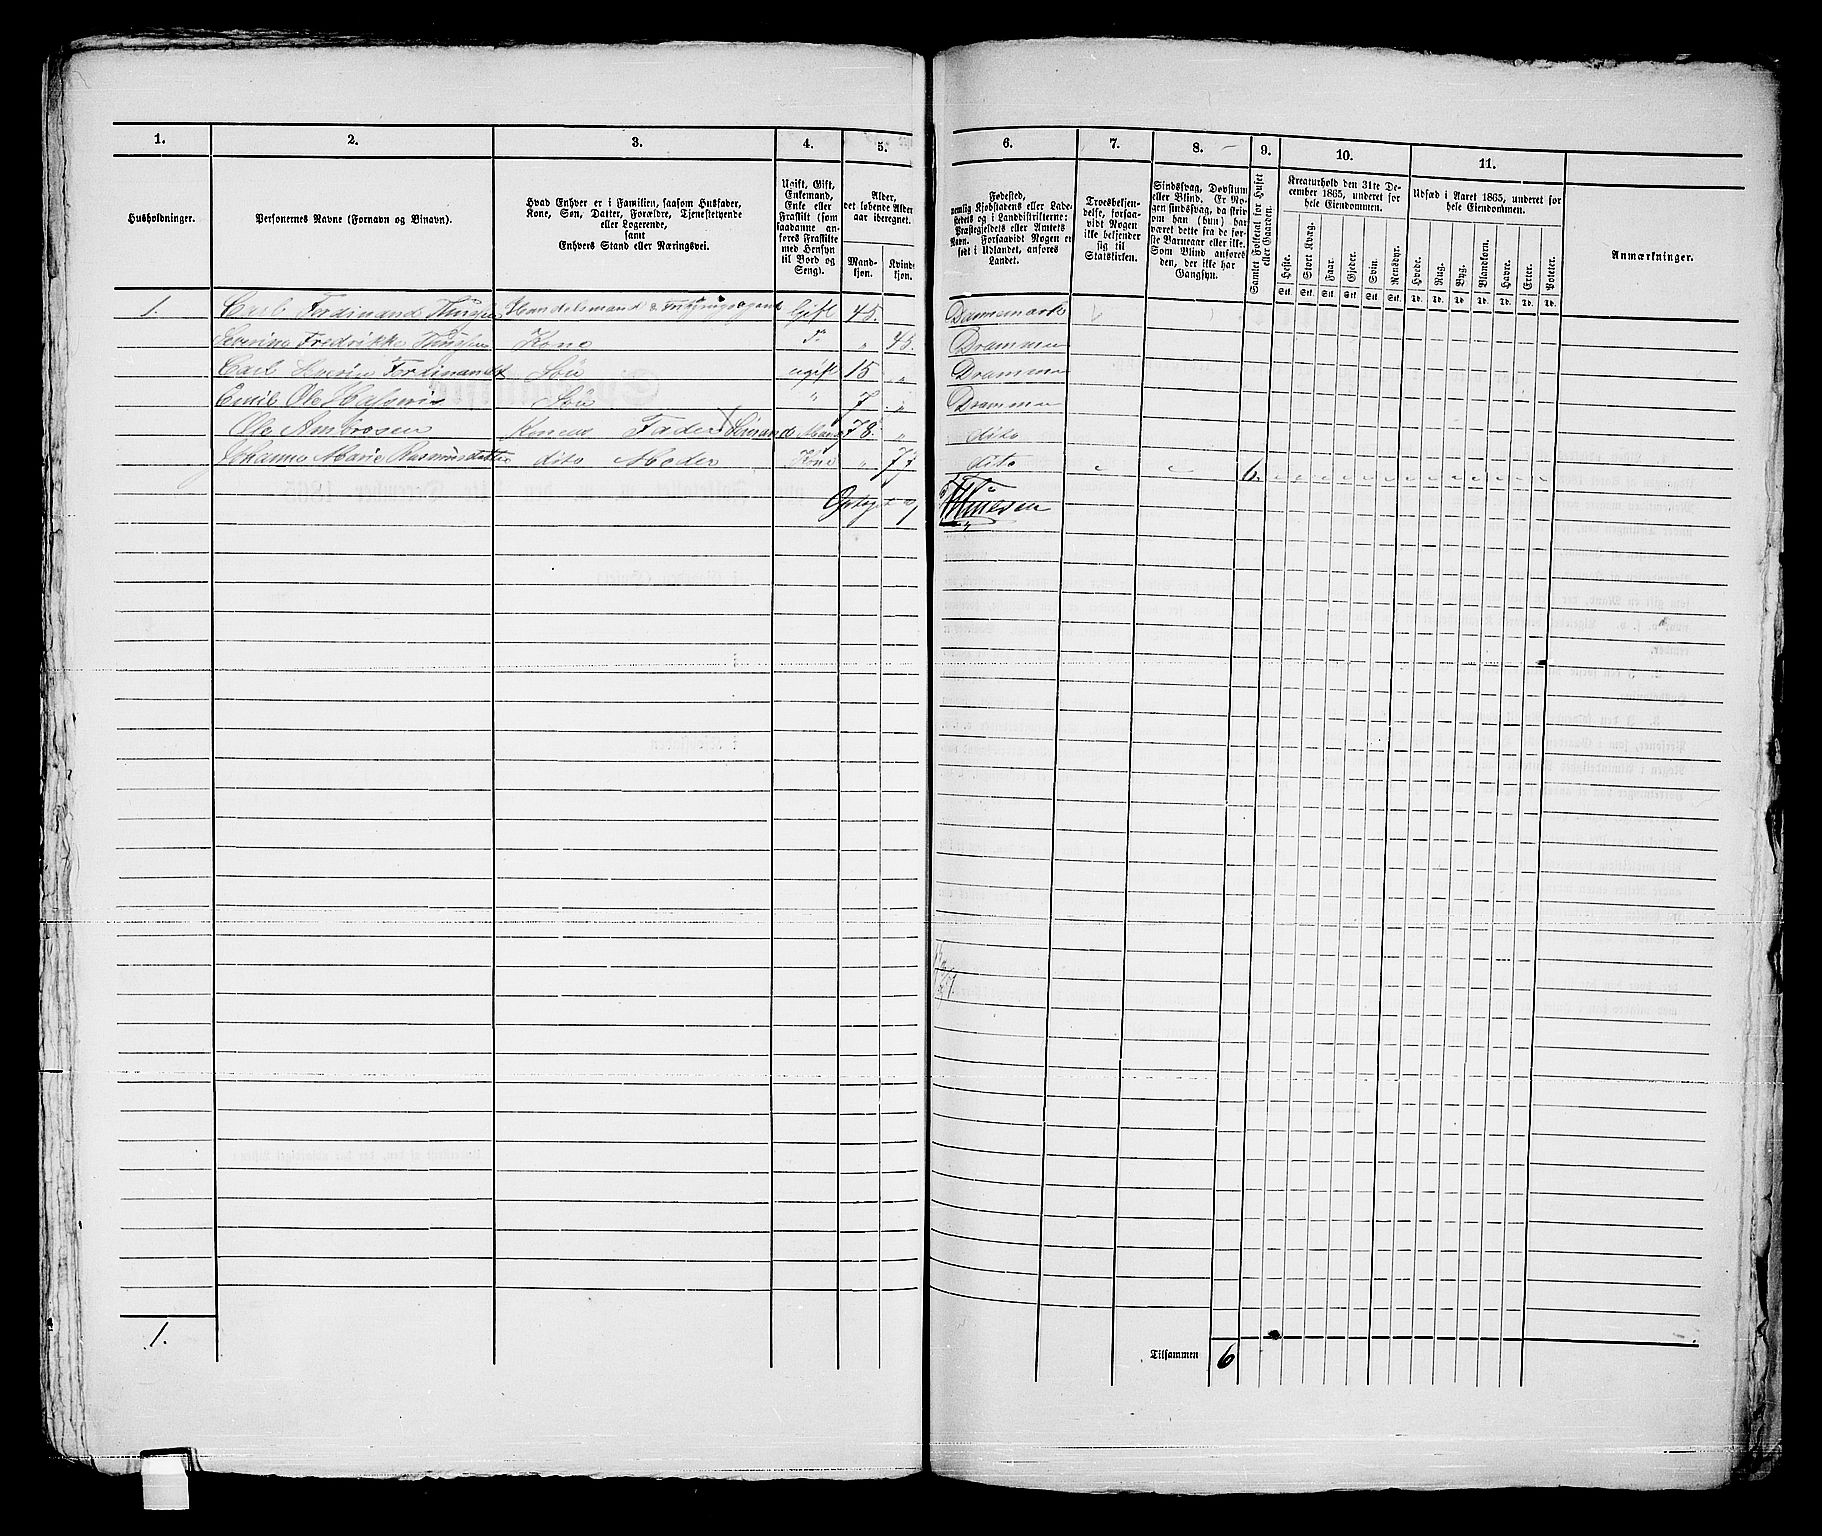 1. 2. 3. 4. 5. 6. 7. 8. 9. 10. 11.
Husholdninger.
Personernes Navne (Fornavn og Binavn).
Hvad Enhver er i Familien, saasom Husfader,
Kone, Søn, Datter, Forældre, Tjenestetyende
eller Logerende,
samt
Enhvers Stand eller Næringsvei.
Ugift, Gift,
Enkemand,
Enke eller
Fraskilt (som
saadanne an-
føres Fraskilte
med Hensyn
til Bord og
Seng).
Alder,
det løbende Alder
aar iberegnet.
Mand-
kjøn.
Kvinde-
kjøn.
Fødested,
nemlig Kjøbstadens eller Lade-
stedets og i Landdistrikterne:
Præstegjeldets eller Amtets
Navn. Forsaavidt Nogen er
født i Udlandet, anføres
Landet.
Troesbekjen-
delse, forsaa-
vidt Nogen
ikke bekjender
sig til
Statskirken.
Sindssvag, Døvstum
eller Blind. Er No-
gen sindssvag, da skriv
han (hun) har
været dette fra de før-
ste Barneaar eller ikke.
Som Blind anføres
den, der ikke har
Gangsyn.
Samlet Folketal for Huset
eller Gaarden.
Kreaturhold den 31te De-
cember 1865, underet for
hele Eiendommen.
Heste.
Stort Kvæg.
Faar.
Gjeder.
Svin.
Rensdyr.
Stk. Stk. Stk. Stk. Stk. Stk.
Udsæd i Aaret 1865, underet for
hele Eiendommen.
Hvede.
Rug.
Byg.
Blandkorn.
Havre.
Erter.
Poteter.
Td. Td. Td. Td. Td. Td. Td.
Anmærkninger.
1. Carl Ferdinand Handelsmand & Gift 45. Dannemark
Severine Fredrikke Kone 45. Drammen
Carl Ferdinand Søn ugift 15 " Drammen
Emil Ole Søn " 7 " Drammen
Ole Ambrosen Konens Fader 78. " dito
Johanne Marie Rasmusdatter dito Moder Kone " 77 dito 6.
Optaget af
1.
Tilsammen 6